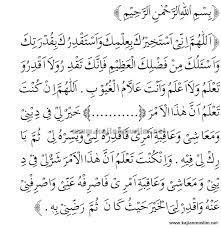 ﴿ بِسْمِ اللهِ الرَّحْمٰنِ الرَّحِيْمِ ﴾
﴿ اَللّٰهُمَّ اِنِّيْ اَسْتَخِيْرُكَ بِعِلْمِكَ وَاَسْتَقْدِرُكَ بِقُدْرَتِكَ
وَاَسْئَلُكَ مِنْ فَضْلِكَ الْعَظِيْمِ فَاِنَّكَ تَقْدِرُ وَلَا اَقْدِرُ وَ
تَعْلَمُ وَلَا اَعْلَمُ وَاَنْتَ عَلَّامُ الْغُيُوْبِ . اَللّٰهُمَّ اِنْ كُنْتَ
تَعْلَمُ اَنَّ هٰذَا الْاَمْرَ (............) خَيْرٌ لِيْ فِيْ دِيْنِيْ
وَمَعَاشِيْ وَعَاقِبَةِ اَمْرِيْ فَاقْدُرْهُ لِيْ وَيَسِّرْهُ لِيْ ثُمَّ بَا
رِكْ لِيْ فِيْهِ . وَاِنْ كُنْتَ تَعْلَمُ اَنَّ هٰذَا الْاَمْرَ شَرٌّ لِيْ فِيْ
دِيْنِيْ وَمَعَاشِيْ وَعَاقِبَةِ اَمْرِيْ فَاصْرِفْهُ عَنِّيْ وَاصْرِفْنِيْ
عَنْهُ وَاقْدُرْ لِيَ الْخَيْرَ حَيْثُ كَانَ ثُمَّ رَضِّنِيْ بِهِ . ﴾
www.kajianmuslim.net